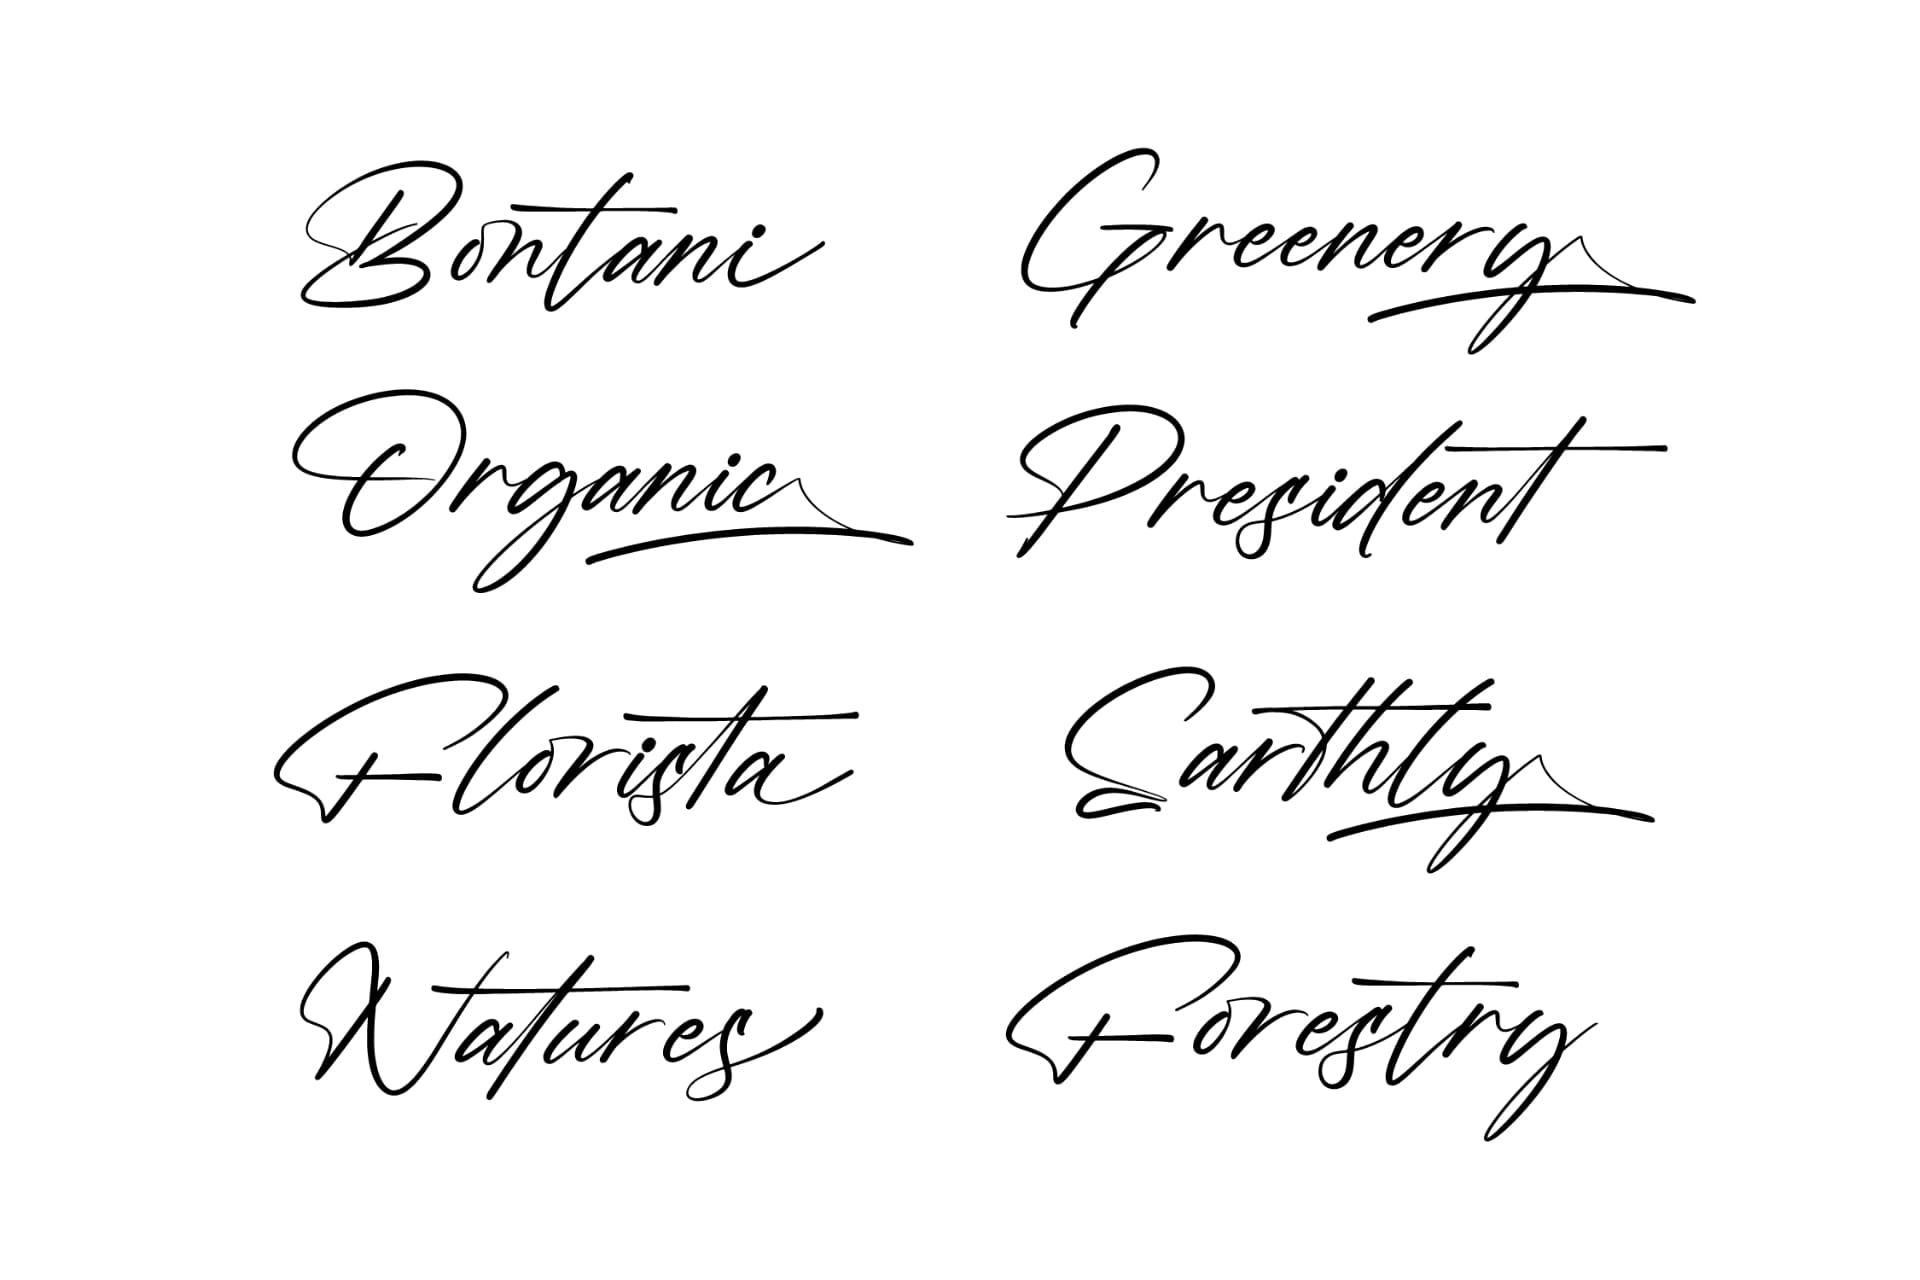 Bontani
Greenery
Organic
President
Florista
Earthly
Natures
Forestry